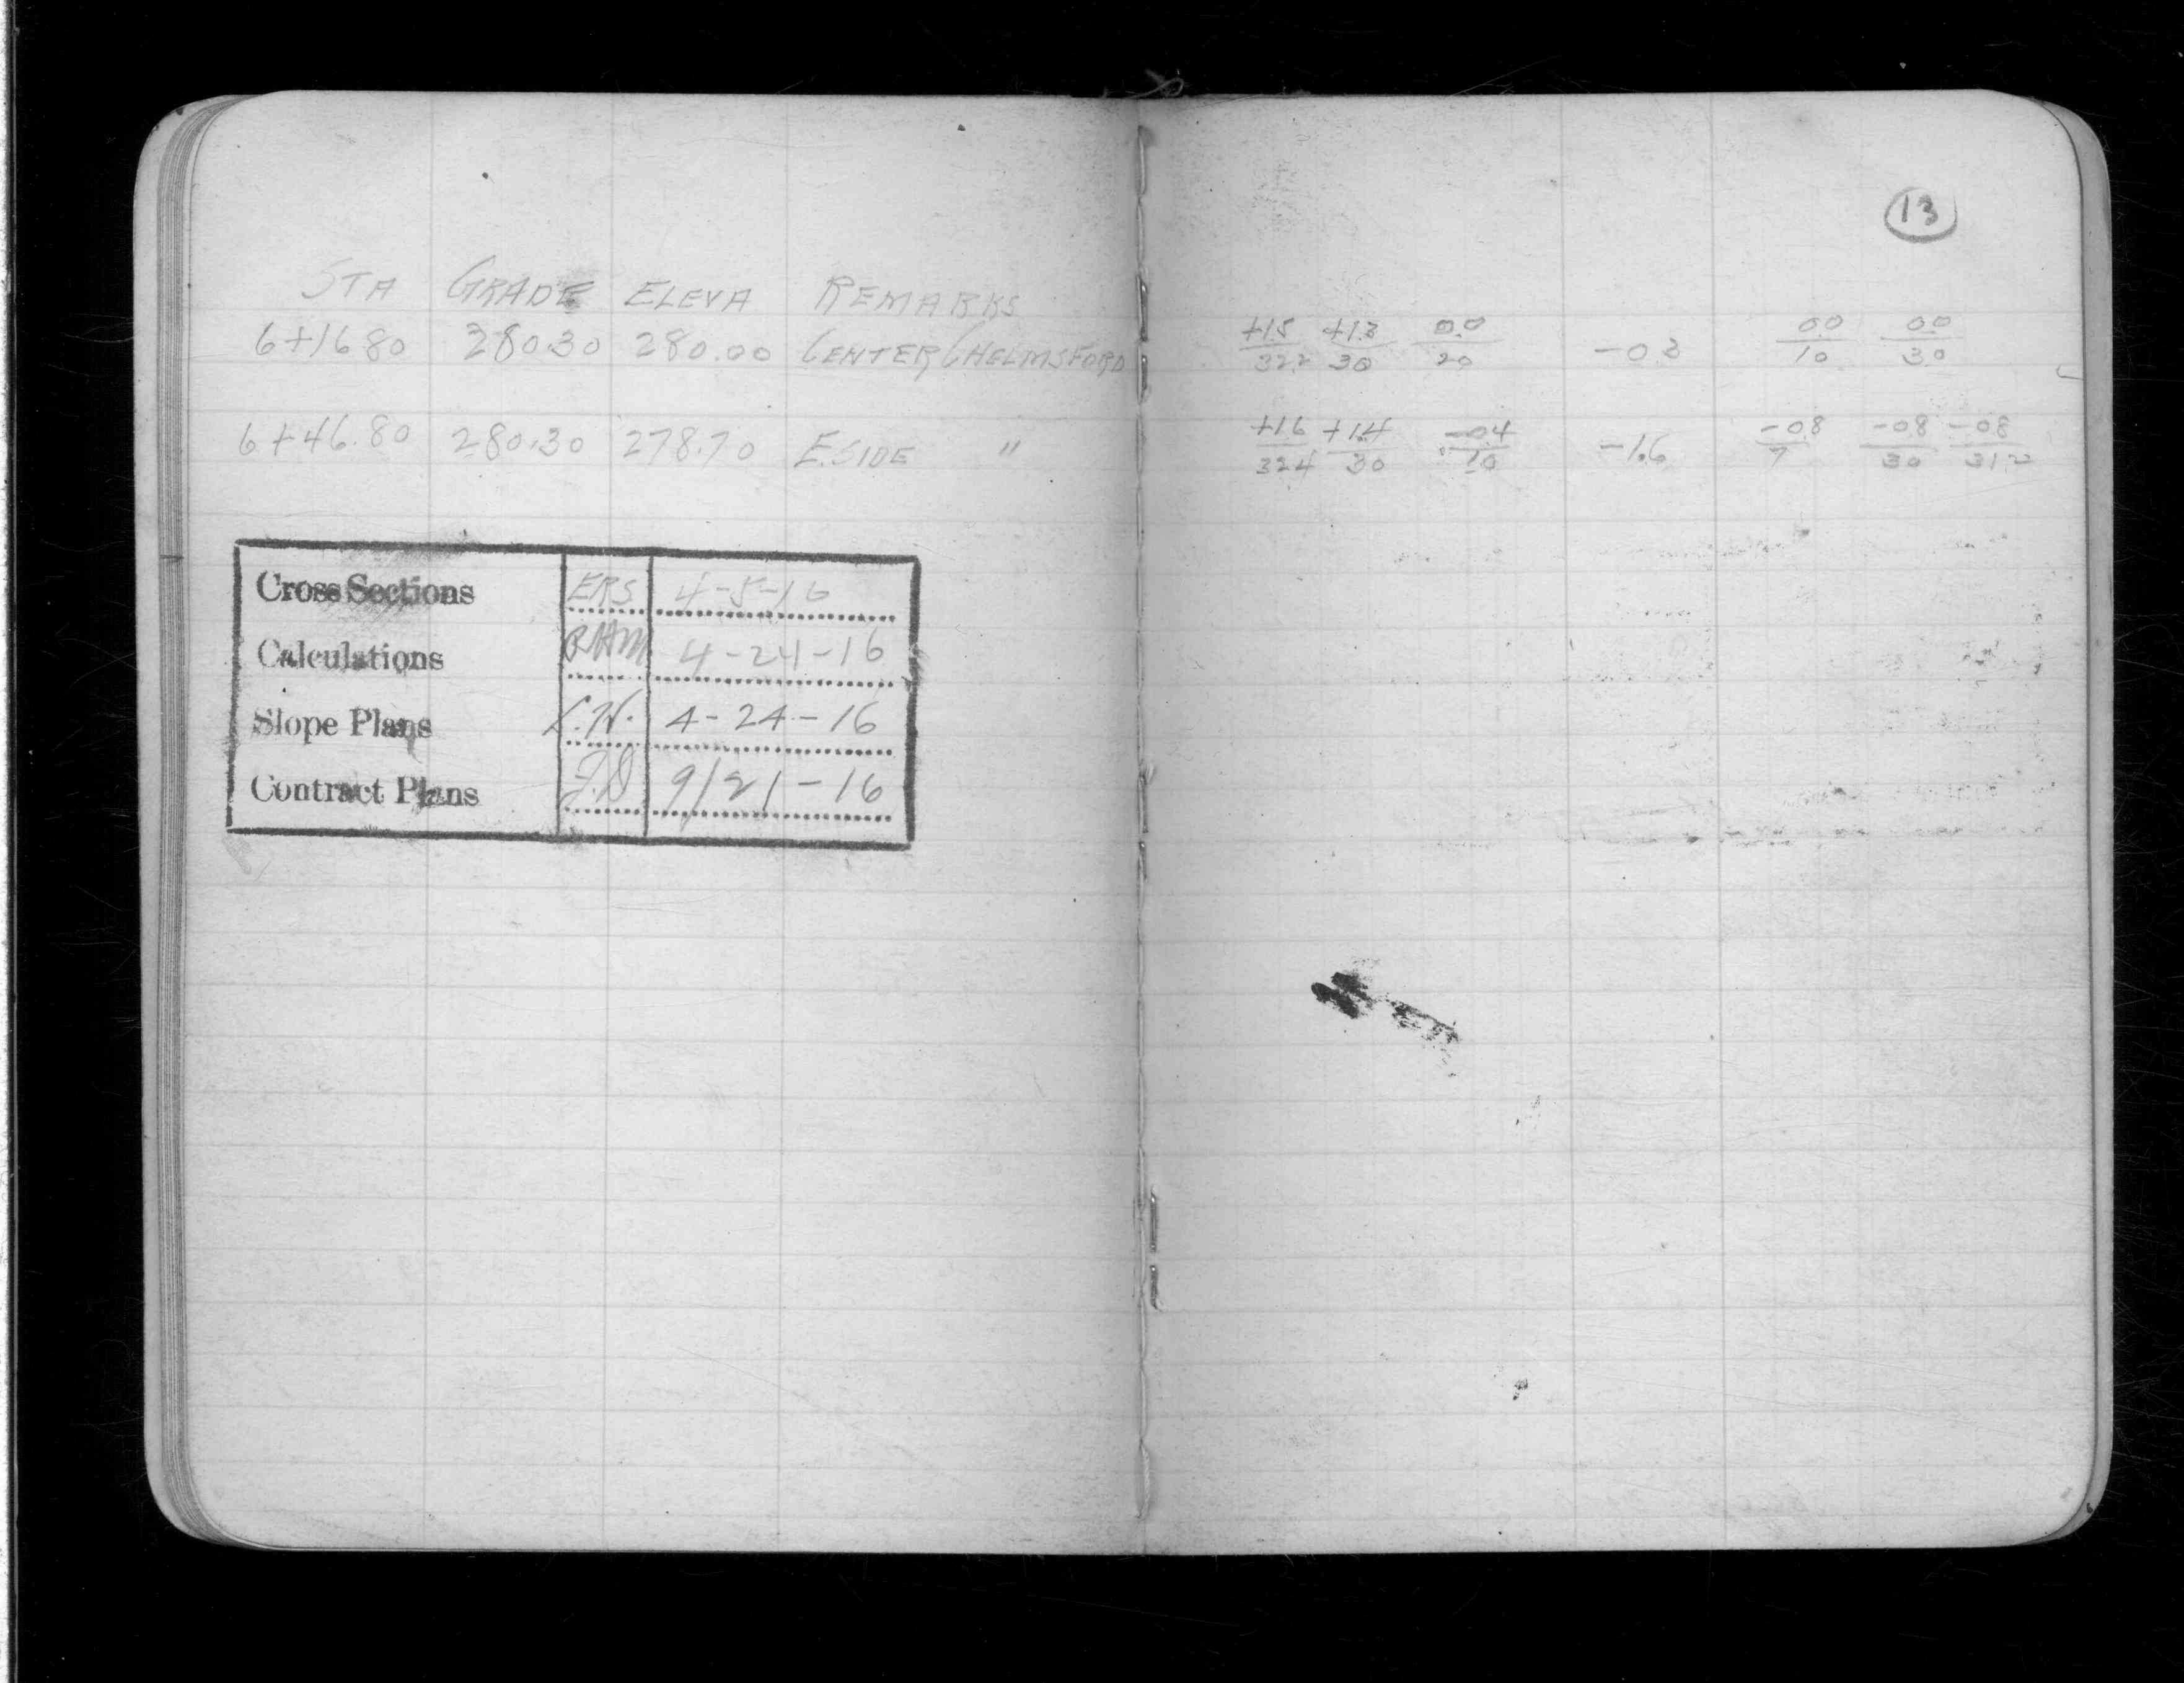 STA GRADE ELEVA REMARKS
6+16.80 280.30 280.00 CENTER CHELMSFORD
6+46.80 280.30 278.70 E.SIDE "
Cross Sections ERS 4-5-16
Calculations 4-24-16
Slope Plans L.W. 4-24-16
Contract Plans J.D. 9/21-16
13
+1.5 +1.3 0.0 -0.3 0.0 0.0
32.2 30 20 10 30
+1.6 +1.4 -0.4 -1.6 -0.8 -0.8 -0.8
32.4 30 10 7 30 31.2